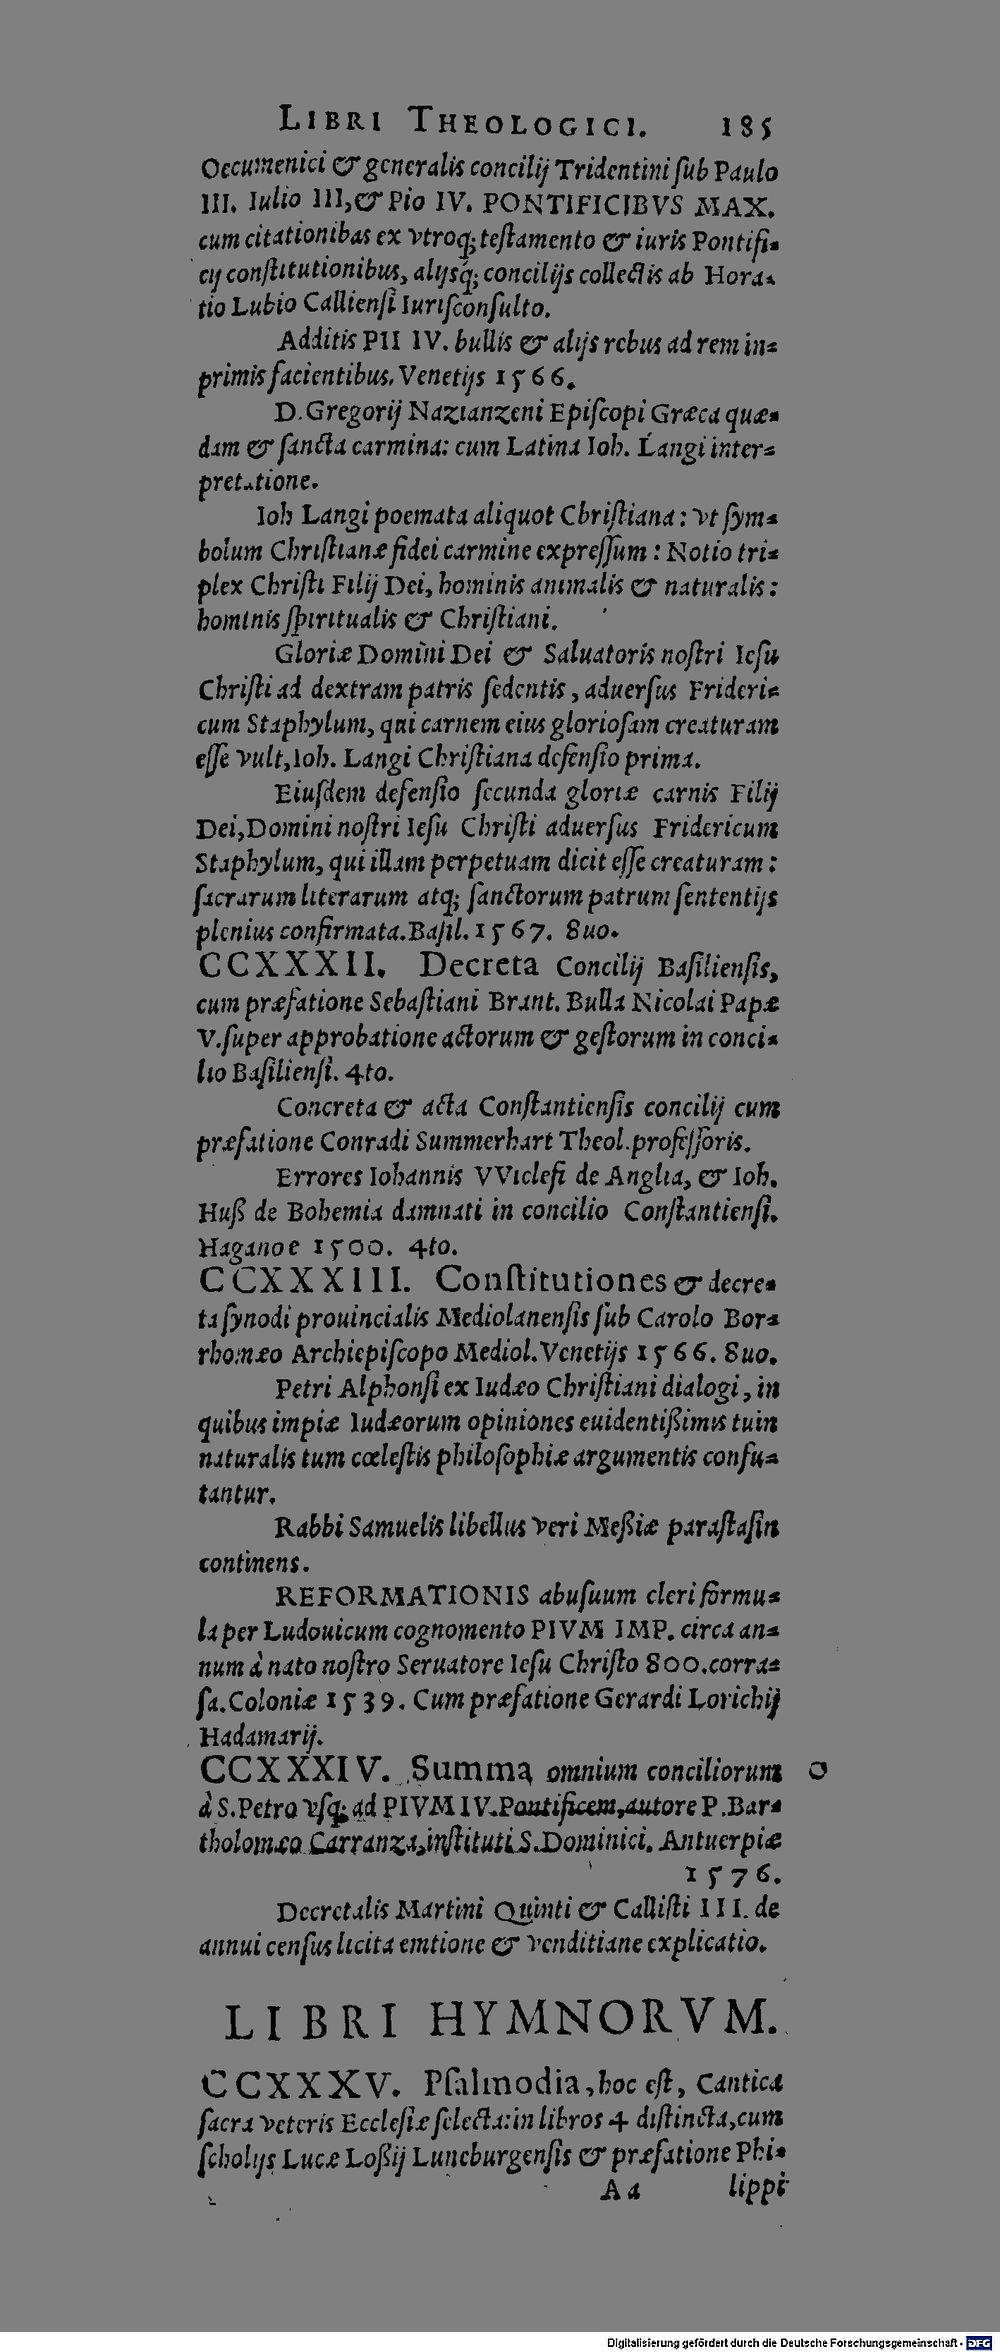 LIBRI THEOLOGICI. 185
Oecumenici & generalis concilij Tridentini ſub Paulo
III. Iulio III,& Pio IV. PONTIFICIBVS MAX.
cum citationibus ex vtroq; teſtamento & iuris Pontifi-
cij conſtitutionibus, alijsq; concilijs collectis ab Hora-
tio Lubio Callienſi Iuriſconſulto.
Additis PII IV. bullis & alijs rebus ad rem in-
primis facientibus. Venetijs 1566.
D. Gregorij Nazianzeni Epiſcopi Græca quæ-
dam & ſancta carmina: cum Latina Ioh. Langi inter-
pretatione.
Ioh Langi poemata aliquot Chriſtiana: vt ſym-
bolum Chriſtianæ fidei carmine expreſſum: Notio tri-
plex Chriſti Filij Dei, hominis animalis & naturalis:
hominis ſpiritualis & Chriſtiani.
Gloriæ Domini Dei & Saluatoris noſtri Ieſu
Chriſti ad dextram patris ſedentis, aduerſus Frideri-
cum Staphylum, qui carnem eius glorioſam creaturam
eſſe vult, Ioh. Langi Chriſtiana defenſio prima.
Eiuſdem defenſio ſecunda gloriæ carnis Filij
Dei, Domini noſtri Ieſu Chriſti aduerſus Fridericum
Staphylum, qui illam perpetuam dicit eſſe creaturam:
ſacrarum literarum atq; ſanctorum patrum ſententijs
plenius confirmata. Baſil. 1567. 8uo.
CCXXXII. Decreta Concilij Baſilienſis,
cum præfatione Sebaſtiani Brant. Bulla Nicolai Papæ
V. ſuper approbatione actorum & geſtorum in conci-
lio Baſilienſi. 4to.
Concreta & acta Conſtantienſis concilij cum
præfatione Conradi Summerhart Theol. profeſſoris.
Errores Iohannis VViclefi de Anglia, & Ioh.
Huß de Bohemia damnati in concilio Conſtantienſi.
Haganoe 1500. 4to.
CCXXXIII. Conſtitutiones & decre-
ta ſynodi prouincialis Mediolanenſis ſub Carolo Bor-
rhomæo Archiepiſcopo Mediol. Venetijs 1566. 8uo.
Petri Alphonſi ex Iudæo Chriſtiani dialogi, in
quibus impiæ Iudæorum opiniones euidentißimis tum
naturalis tum cœleſtis philoſophiæ argumentis confu-
tantur.
Rabbi Samuelis libellus veri Meßiæ paraſtaſin
continens.
REFORMATIONIS abuſuum cleri formu-
la per Ludouicum cognomento PIVM IMP. circa an-
num à nato noſtro Seruatore Ieſu Chriſto 800. corra-
ſa. Coloniæ 1539. Cum præfatione Gerardi Lorichij
Hadamarij.
CCXXXIV. Summa omnium conciliorum O
à S. Petro vſq; ad PIVM IV. Pontificem, autore P. Bar-
tholomæo Carranza, inſtituti S. Dominici. Antuerpiæ
1576.
Decretalis Martini Quinti & Calliſti III. de
annui cenſus licita emtione & venditiane explicatio.
LIBRI HYMNORVM.
CCXXXV. Pſalmodia, hoc eſt, Cantica
ſacra veteris Eccleſiæ ſelecta: in libros 4 diſtincta, cum
ſcholijs Lucæ Loßij Luneburgenſis & præfatione Phi-
Aa lippi
Digitalisierung gefördert durch die Deutsche Forschungsgemeinschaft - DFG